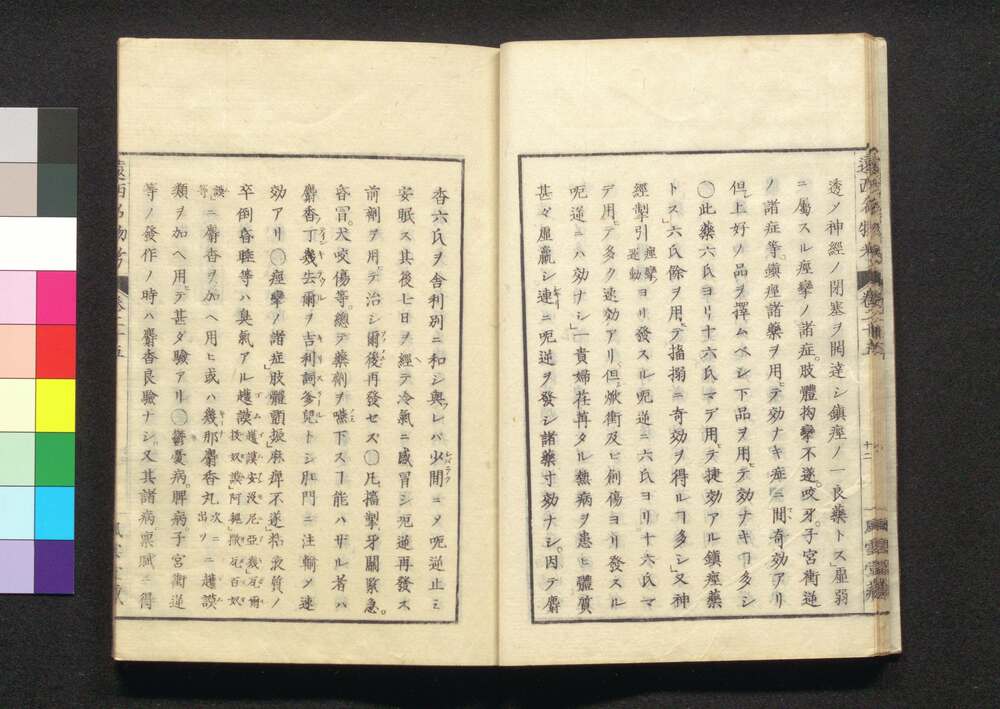 透ノ神經ノ閉塞ヲ開達シ鎭痙ノ一良藥トス」虛弱
ニ屬スル痙攣ノ諸症。肢體拘攣不遂。咬牙。子宮衝逆
ノ諸症等。鎭痙諸藥ヲ用ヒテ効ナキ症ニ間奇効アリ
但上好ノ品ヲ擇ムベシ下品ヲ用ヒテ効ナキヿ多シ
◯此藥六氏ヨリ十六氏マデ用ヒテ捷効アル鎭痙藥
トス」六氏餘ヲ用ヒテ搐搦ニ奇効ヲ得ルヿ多シ」又神
經掣引 痙攣運動 ヨリ發スル呃逆ニ六氏ヨリ十六氏マ
デ用ヒテ多ク速効アリ。但焮衝及ヒ創傷ヨリ發スル
呃逆ニハ効ナシ」一貴婦荏苒タル熱病ヲ患ヒ體質
甚タ虛羸シ連ニ呃逆ヲ發シ諸藥寸効ナシ。因テ麝
香六氏ヲ舍利別ニ和シ與フレバ少間ニメ呃逆止ミ
安眠ス其後七日ヲ經テ冷氣ニ感冒シ呃逆再發ス
前劑ヲ用ヒテ治シ爾後再發セズ◯凡搐掣。牙關緊急。
昏冒。犬咬傷等。總テ藥劑ヲ嚥下スヿ能ハザル者ハ
麝香丁幾去爾ヲ吉利詞爹兒トシ肛門ニ注輸メ速
効アリ◯痙攣ノ諸症」肢體顫振。麻痺不遂」
卒倒昏睡等ハ臭氣アル護謨
ニ麝香ヲ加ヘ用ヒ或ハ幾那麝香丸 次ニ出ツ ニ護謨
類ヲ加ヘ用ヒテ甚タ驗アリ◯鬱憂病。脾病。子宮衝逆
等ノ發作ノ時ハ麝香良驗ナシ。又其諸病稟賦ニ得
遠西名物考
卷二十五
十二
風雲堂藏